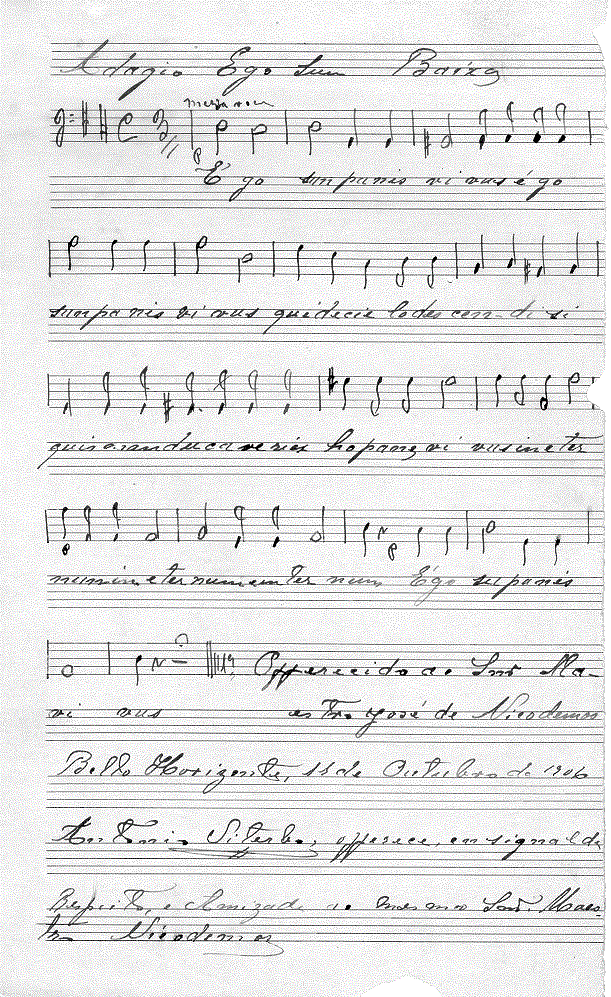 Adagio Ego Sum Baixo
meza voce
E go sun panis vi vus é go
sun pa nis vi vus qui de cie lo des cen - di si
quis manducaveriex hopane vi vus in e ter
num in e ter num em ter num Égo su panis
vi vus
Offerecido ao Snr Ma-
estro José de Nicodemos
Bello Horizonte, 15 de Outubro de 1906
Antonio Viterbo, offerece, en signal de
Respeito, e Amizade ao mesmo Snr. Maes-
tro Nicodemos